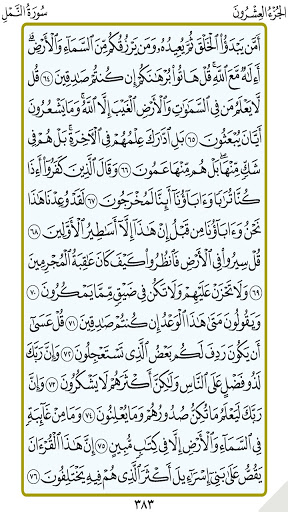 الجزء العشرون
سورة النمل
أَمَّن يَبْدَؤُا۟ ٱلْخَلْقَ ثُمَّ يُعِيدُهُۥ وَمَن يَرْزُقُكُم مِّنَ ٱلسَّمَآءِ وَٱلْأَرْضِ ۗ
أَءِلَٰهٌ مَّعَ ٱللَّهِ ۚ قُلْ هَاتُوا۟ بُرْهَٰنَكُمْ إِن كُنتُمْ صَٰدِقِينَ ٦٤ قُل
لَّا يَعْلَمُ مَن فِى ٱلسَّمَٰوَٰتِ وَٱلْأَرْضِ ٱلْغَيْبَ إِلَّا ٱللَّهُ ۚ وَمَا يَشْعُرُونَ
أَيَّانَ يُبْعَثُونَ ٦٥ بَلِ ٱدَّٰرَكَ عِلْمُهُمْ فِى ٱلْءَاخِرَةِ ۚ بَلْ هُمْ فِى
شَكٍّ مِّنْهَا ۖ بَلْ هُم مِّنْهَا عَمُونَ ٦٦ وَقَالَ ٱلَّذِينَ كَفَرُوٓا۟ أَءِذَا
كُنَّا تُرَٰبًا وَءَابَآؤُنَآ أَئِنَّا لَمُخْرَجُونَ ٦٧ لَقَدْ وُعِدْنَا هَٰذَا
نَحْنُ وَءَابَآؤُنَا مِن قَبْلُ إِنْ هَٰذَآ إِلَّآ أَسَٰطِيرُ ٱلْأَوَّلِينَ ٦٨
قُلْ سِيرُوا۟ فِى ٱلْأَرْضِ فَٱنظُرُوا۟ كَيْفَ كَانَ عَٰقِبَةُ ٱلْمُجْرِمِينَ
٦٩ وَلَا تَحْزَنْ عَلَيْهِمْ وَلَا تَكُن فِى ضَيْقٍ مِّمَّا يَمْكُرُونَ ٧٠
وَيَقُولُونَ مَتَىٰ هَٰذَا ٱلْوَعْدُ إِن كُنتُمْ صَٰدِقِينَ ٧١ قُلْ عَسَىٰٓ
أَن يَكُونَ رَدِفَ لَكُم بَعْضُ ٱلَّذِى تَسْتَعْجِلُونَ ٧٢ وَإِنَّ رَبَّكَ
لَذُو فَضْلٍ عَلَى ٱلنَّاسِ وَلَٰكِنَّ أَكْثَرَهُمْ لَا يَشْكُرُونَ ٧٣ وَإِنَّ
رَبَّكَ لَيَعْلَمُ مَا تُكِنُّ صُدُورُهُمْ وَمَا يُعْلِنُونَ ٧٤ وَمَا مِنْ غَآئِبَةٍ
فِى ٱلسَّمَآءِ وَٱلْأَرْضِ إِلَّا فِى كِتَٰبٍ مُّبِينٍ ٧٥ إِنَّ هَٰذَا ٱلْقُرْءَانَ
يَقُصُّ عَلَىٰ بَنِىٓ إِسْرَٰٓءِيلَ أَكْثَرَ ٱلَّذِى هُمْ فِيهِ يَخْتَلِفُونَ ٧٦
٣٨٣